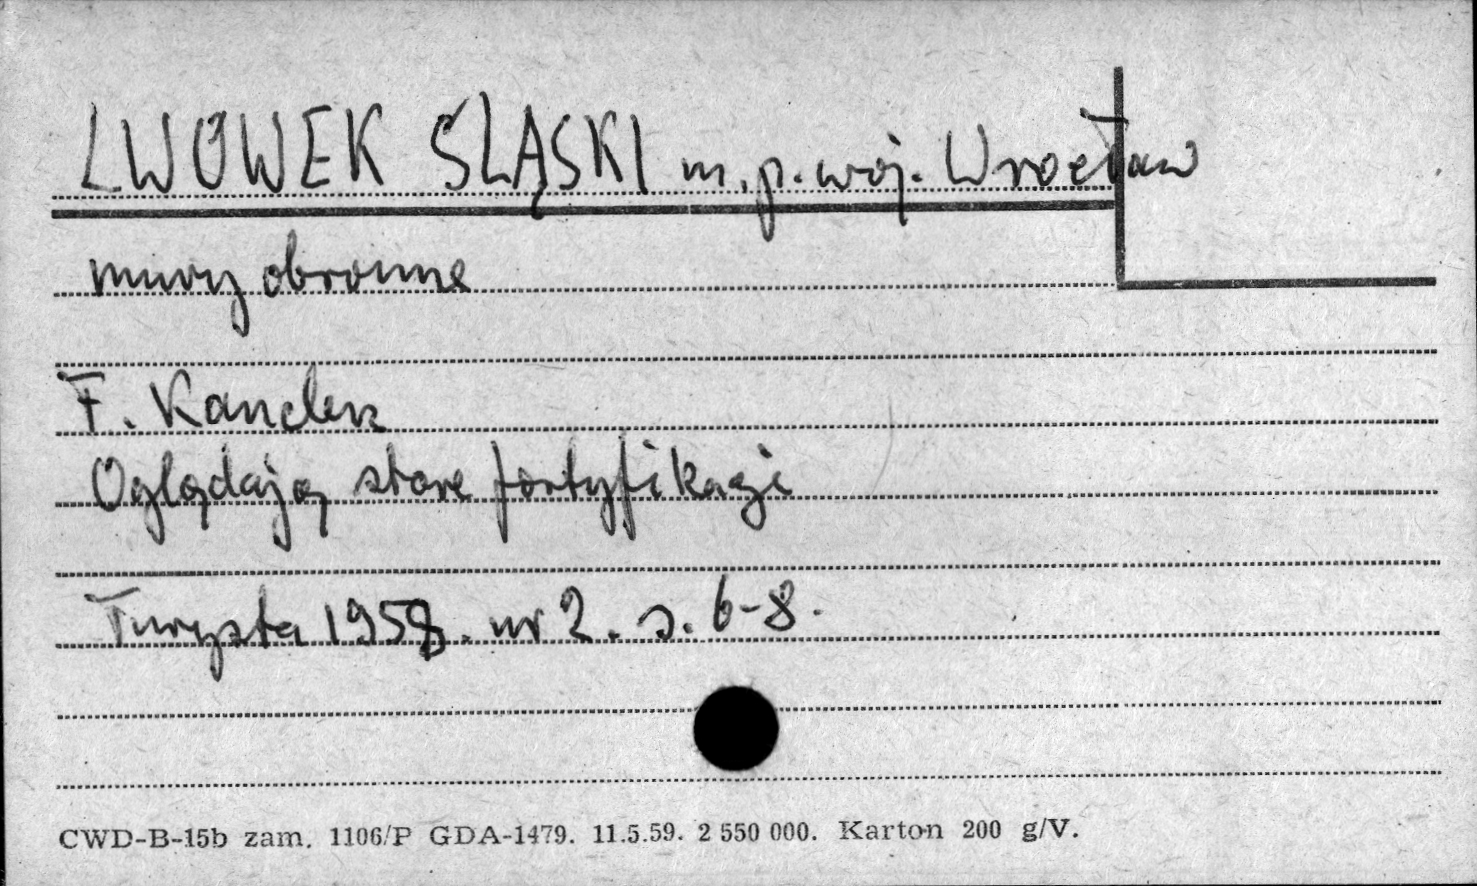 LWÓWEK ŚLĄSKI m. p. woj. Wrocław
mury obronne
F. Kanclerz
Oglądając stare fortyfikacje
Turysta 1958. nr 2. s. 6-8.
CWD-B-15b zam. 1106/P GDA-1479. 11.5.59. 2 550 000. Karton 200 g/V.